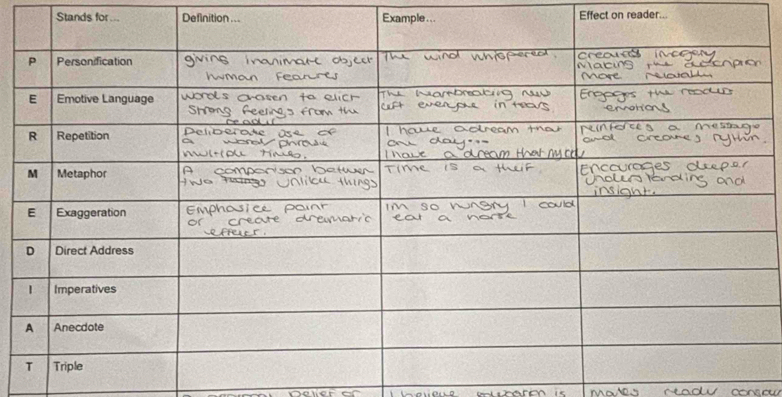 Stands for... Definition... Example... Effect on reader...
P Personification giving inanimate object The wind whispered. creates imagery
human features making the description
more relatable
E Emotive Language words chosen to elicit The heartbreaking news Engages the readers
strong feelings from the left everyone in tears. emotions
reader
R Repetition Deliberate use of I have a dream that reinforces a message
a word/phrase one day... and creates rythm.
multiple times. I have a dream that my
M Metaphor A comparison between Time is a theif Encourages deeper
two unlike things understanding and
insight.
E Exaggeration Emphasice point Im so hungry I could
or create dramatic eat a horse
effect.
D Direct Address
I Imperatives
A Anecdote
T Triple
belief or I believe education is makes